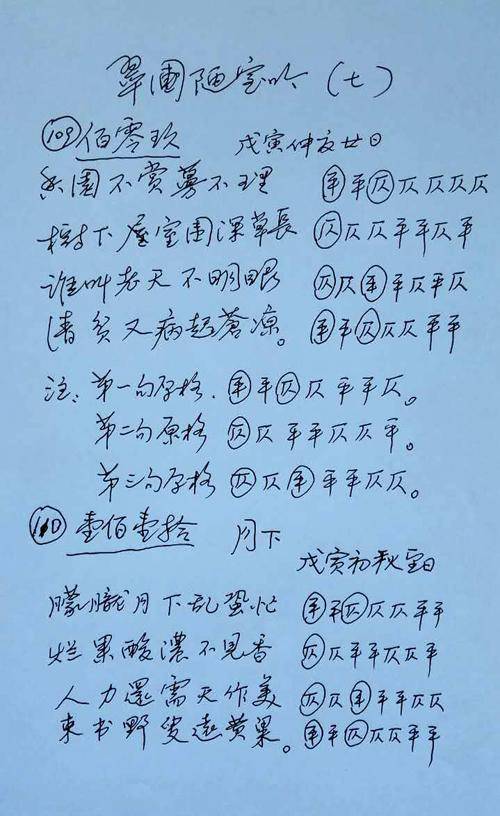 翠園陋室吟（七）
109 佰零玖 戊寅仲夏廿日
園不賞蓦不理 平平仄仄仄仄仄
樹下屋室围深草長 仄仄仄平平仄平
誰叫老天不明眼 仄仄平平仄平仄
清贫又病起蒼凉。 平平仄仄仄平平
注：第一句原格．平平仄仄平平仄。
第二句原格 仄仄平平仄仄平。
第三句原格 仄仄平平平仄仄。
110 壹佰壹拾 月下
戊寅初秋
朦朧月下乱蛩忙 平平仄仄仄平平
烂果酸濃不見香 仄仄平平仄仄平
人力還需天作美 仄仄平平平仄仄
束书野叟黄果。 平平仄仄仄平平